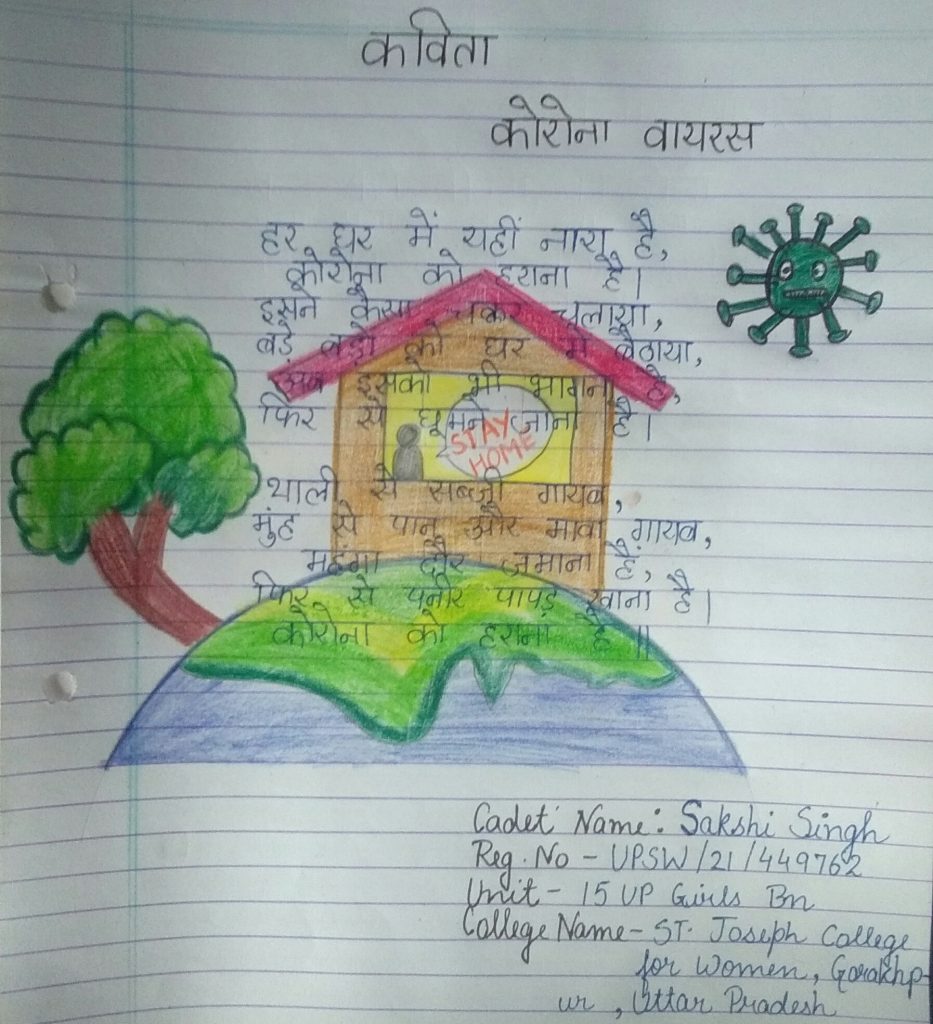 कविता
कोरोना वायरस
हर घर में यहीं नारा है,
कोरोना को हराना है।
इसने कैसा चक्कर चलाया,
बड़े बड़ो को घर में बैठाया,
अब इसको भी भागना है,
फिर से घूमने जाना है।
STAY
HOME
थाली से सब्जी गायब,
मुंह से पान और मावा गायब,
महंगा दौर जमाना है,
फिर से पनीर पापड़ खाना है।
कोरोना को हराना है॥
Cadet Name: Sakshi Singh
Reg. No - UPSW/21/449762
Unit - 15 UP Girls Bn
College Name - ST. Joseph College
for Women, Gorakhp-
ur, Uttar Pradesh